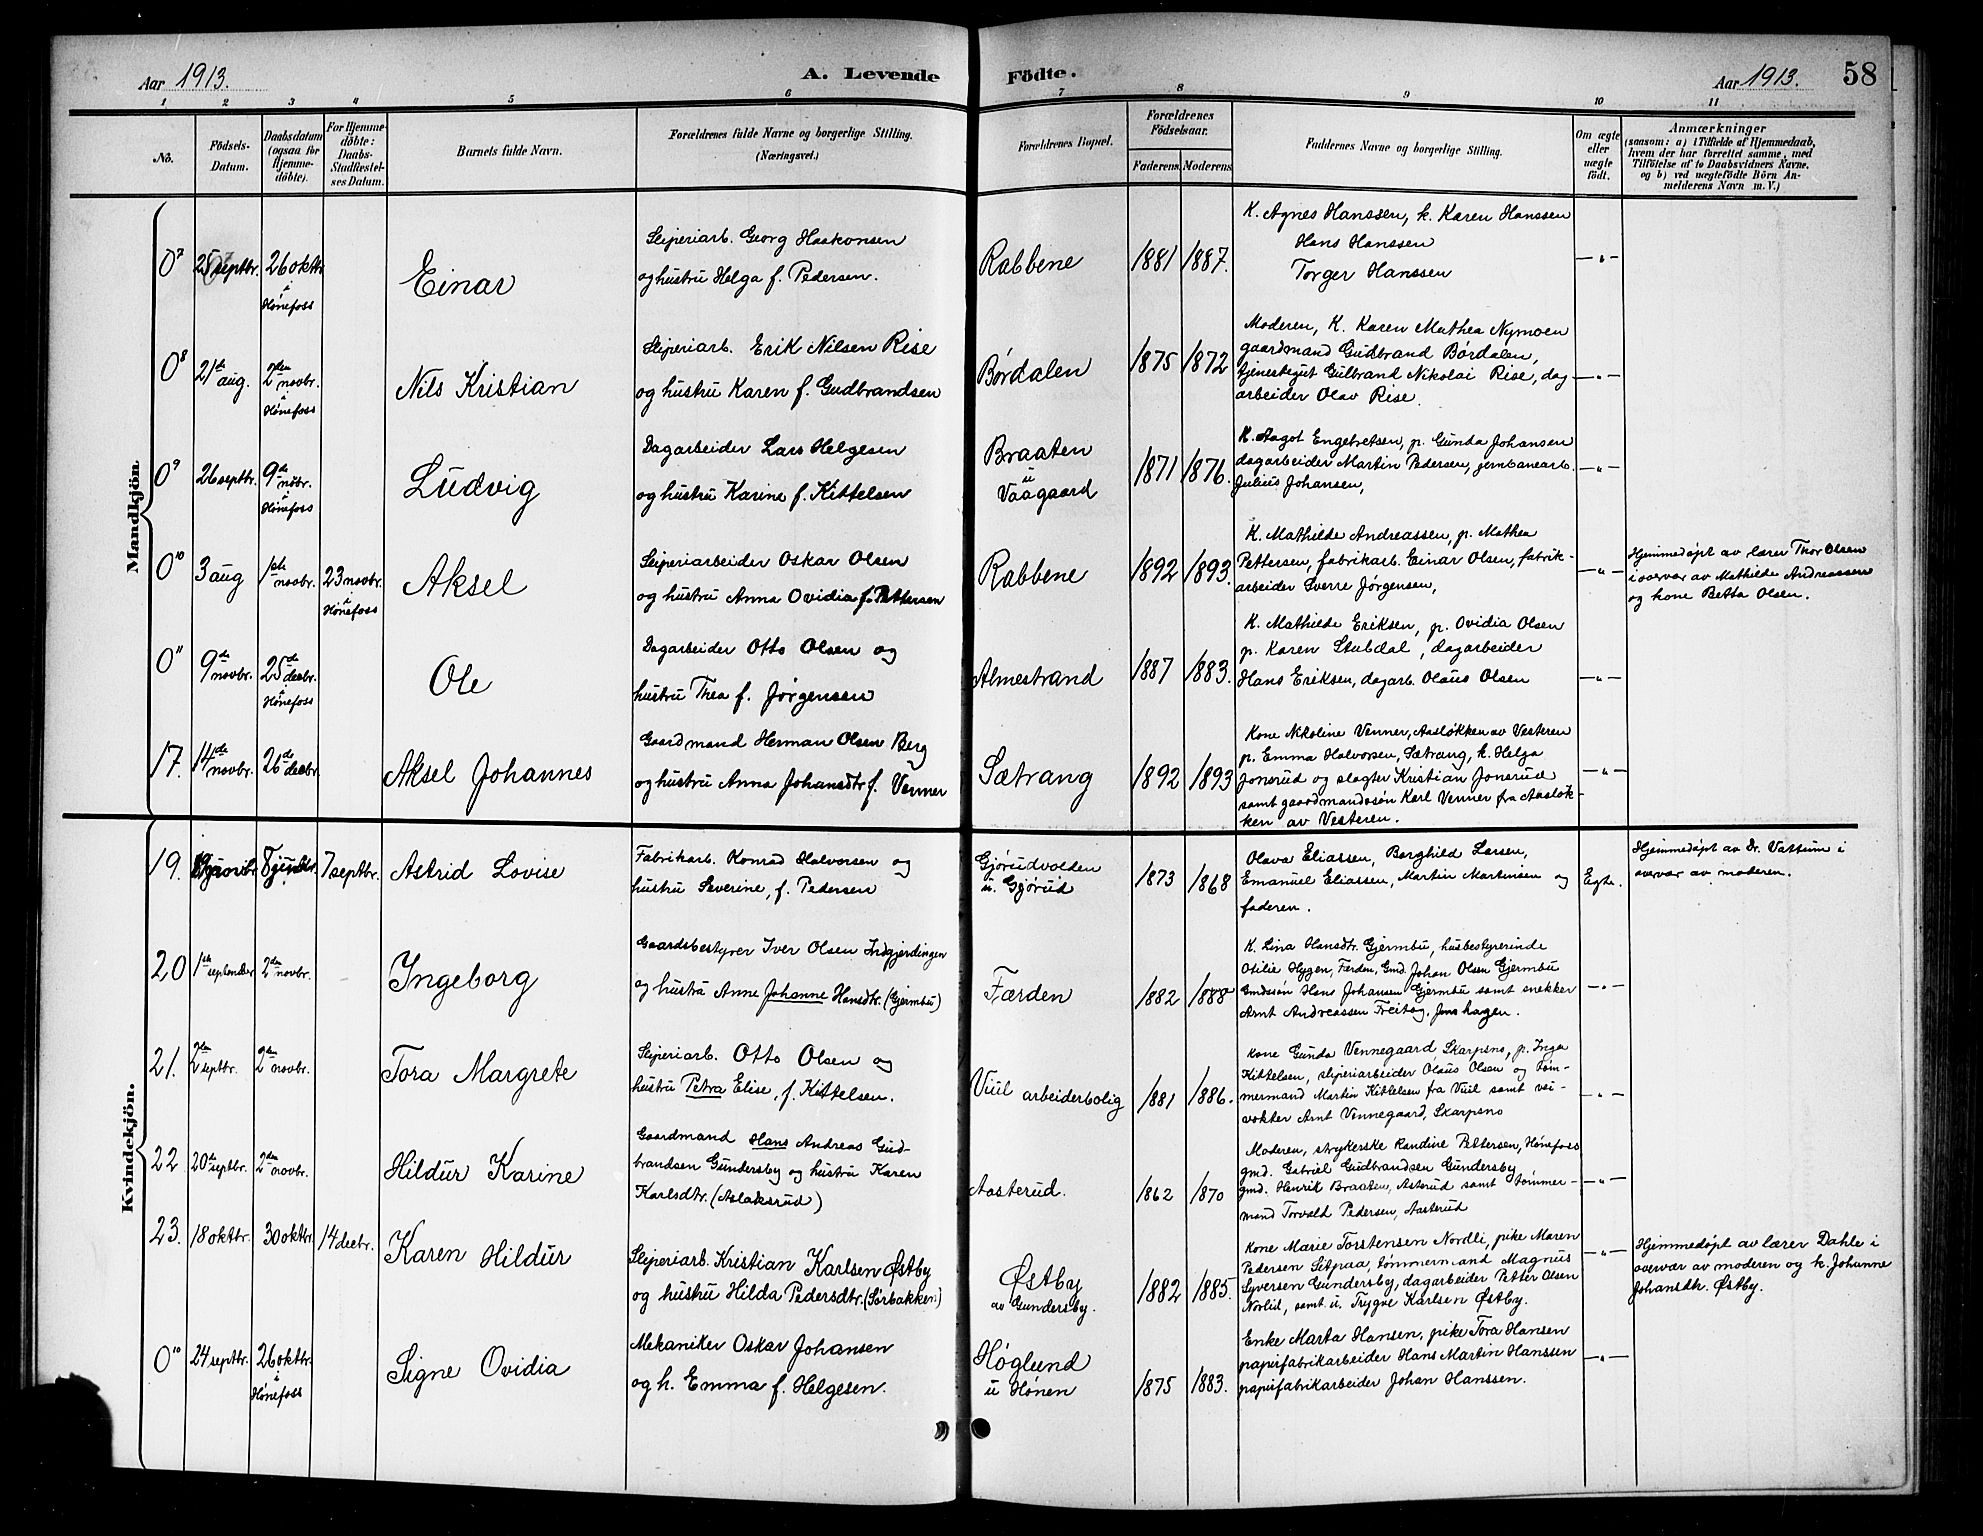 Aar 1913.
A. Levende Födte.
Aar 1913. 58
1 2 3 4 5 6 7 8 9 10 11
No.
Födsels-
Datum.
Daabsdatum
(ogsaa for
Hjemme-
döbte).
For Hjemme-
döbte:
Daabs-
Stadfæstel-
ses Datum.
Barnets fulde Navn.
Forældrenes fulde Navne og borgerlige Stilling.
(Næringsvei.)
Forældrenes Bopæl.
Forældrenes
Födselsaar.
Faderens. Moderens.
Faddernes Navne og borgerlige Stilling.
Om ægte
eller
uægte
födt.
Anmærkninger
(saasom: a) i Tilfælde af Hjemmedaab,
hvem der har forrettet samme, med
Tilföielse af to Daabsvidners Navne.
og b) ved uægtefödte Börn An-
melderens Navn m. V.)
Mandkjön.
0⁷ septbr. 26 oktbr. i Hønefoss
Einar
Sliperiarb. Georg Haakonsen
og hustru Helga f. Pedersen.
Rabbene
1881 1887.
K. Agnes Hanssen, k. Karen Hanssen
Hans Hanssen
Torger Hanssen
—"—
0⁸ 21de aug. 2den novbr. i Hønefoss
Nils Kristian
Sliperiarb. Erik Nilsen Rise
og hustru Karen f. Gudbrandsen
Børdalen
1875 1872
Moderen, K. Karen Mathea Nymoen
gaardmand Gudbrand Børdalen,
tjenestegut Gulbrand Nikolai Rise, dag
arbeider Olav Rise.
—"—
0⁹ 26 septbr. 9de novbr. i Hønefoss
Ludvig
Dagarbeider Lars Helgesen
og hustru Karine f. Kittelsen
Braaten
u
Vaagaard
1871 1876.
K. Aagot Engebretsen, p. Gunda Johansen
dagarbeider Martin Pedersen, jernbanearb.
Julius Johansen,
—"—
0¹⁰ 3 aug 1ste novbr. 23 novbr. i Hønefoss
Aksel
Sliperiarbeider Oskar Olsen
og hustru Anna Ovidia f. Pettersen
Rabbene
1892 1893.
K. Mathilde Andreassen, p. Mathea
Pettersen, fabrikarb. Einar Olsen, fabrik-
arbeider Sverre Jørgensen,
—"—
Hjemmedøpt av lærer Thor Olsen
i overvær av Mathilde Andreassen
og kone Betta Olsen.
0¹¹ 9de novbr. 25de decbr. i Hønefoss
Ole
Dagarbeider Otto Olsen og
hustru Thea f. Jørgensen
Almestrand
1887 1883.
K. Mathilde Eriksen, p. Ovidia Olsen
p. Karen Stubdal, dagarbeider
Hans Eriksen, dagarb. Olaus Olsen
—"—
17. 14de novbr. 26de decbr.
Aksel Johannes
Gaardmand Herman Olsen Berg
og hustru Anna Johansdtr f. Venner
Sætrang
1892 1893
Kone Nikoline Venner, Aasløkken av Vesteren
p. Emma Halvorsen, Sætrang, k. Helga
Jonsrud og slagter Kristian Jonsrud
samt gaardmandssøn Karl Venner fra Aasløk-
ken av Vesteren.
—"—
Kvindekjön.
19. 7 septbr.
Astrid Lovise
Fabrikarb. Konrad Halvorsen og
hustru Severine, f. Pedersen
Gjørudvolden
u. Gjørud
1873 1868
Olava Eliassen, Borghild Larsen,
Emanuel Eliassen, Martin Martinsen og
faderen.
Egte.
Hjemmedøpt av Dr. Vattum i
overvær av moderen.
20 1ste september 2den novbr.
Ingeborg
Gaardsbestyrer Iver Olsen Indgjerdingen
og hustru Anne Johanne Hansdtr. (Gjermbu)
Færden
1882 1888
K. Lina Hansdtr. Gjermbu, husbestyrerinde
Otilie Hygen, Færden, Gmd. Johan Olsen Gjermbu
Gmdssøn Hans Johansen Gjermbu samt snekker
Arnt Andreassen Freitag, Jonshagen.
—"—
21. 2den septbr. 2den novbr.
Tora Margrete
Sliperiarb. Otto Olsen og
hustru Petra Elise, f. Kittelsen.
Viul arbeiderbolig
1881 1886.
Kone Gunda Vennegaard, Skarpsno, p. Inga
Kittelsen, sliperiarbeider Olaus Olsen og Tøm-
mermand Martin Kittelsen fra Viul samt vei-
vokter Arnt Vennegaard, Skarpsno
—"—
22 20de septbr. 2den novbr.
Hildur Karine
Gaardmand Hans Andreas Gud-
brandsen Gundersby og hustru Karen
Karlsdtr. (Aslaksrud)
Aasterud.
1862 1870
Moderen, strykerske Randine Pettersen, Hønefoss
gmd. Gabriel Gudbrandsen Gundersby
gmd. Henrik Braaten, Asterud samt tømmer-
mand Torvald Pedersen, Aasterud
—"—
23. 18 oktbr. 30 oktbr. 14 decbr.
Karen Hildur
Sliperiarb. Kristian Karlsen Østby
og hustru Hilda Pedersdtr. (Sørbakken)
Østby
av Gundersby.
1882 1885.
Kone Marie Torstensen Nordli, pike Maren
Pedersen Sitpaa, tømmermand Magnus
Syversen Gundersby, dagarbeider Petter Olsen
Norlid, samt u. Trygve Karlsen Østby.
—"—
Hjemmedøpt av lærer Dahle i
overvær av moderen og k. Johanne
Johansdtr. Østby.
0¹⁰ 24 septbr. 26 oktbr. i Hønefoss
Signe Ovidia
Mekaniker Oskar Johansen
og h. Emma f. Helgesen.
Høglund
u Hønen
1875 1883.
Enke Marta Hansen, pike Tora Hansen
papirfabrikarbeider Hans Martin Hanssen
papirfabrikarbeider Johan Hanssen.
—"—